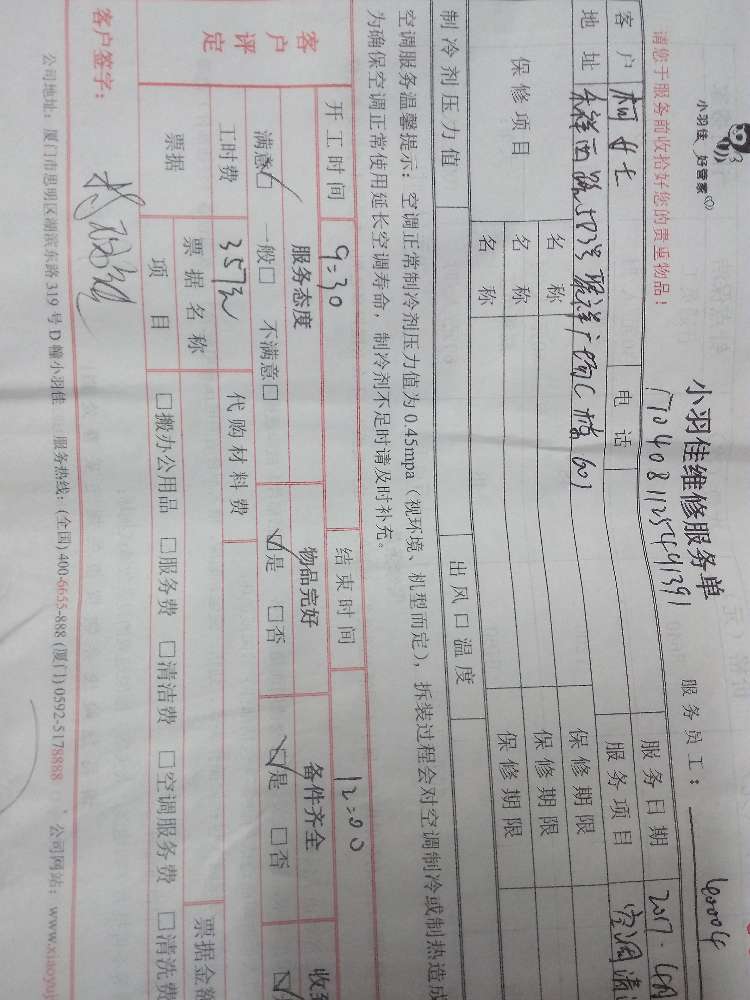 小羽佳 好管家
小羽佳维修服务单
1704081125441391
服务员工: 60004
请您于服务前收拾好您的贵重物品!
客户 女士 电话 服务日期 2017.4
地址 服务项目 空调清
保修项目 名称 保修期限
名称 保修期限
名称 保修期限
制冷剂压力值 出风口温度
空调服务温馨提示: 空调正常制冷剂压力值为0.45mpa (视环境、机型而定), 拆装过程会对空调制冷或制热造成
为确保空调正常使用延长空调寿命, 制冷剂不足时请及时补充。
开工时间 9:30 结束时间 12:00
客户评定 服务态度 物品完好 备件齐全 收
满意☑ 一般□ 不满意□ ☑是 □否 ☑是 □否
工时费 357元 代购材料费
票据 票据名称 票据金额
项目 □搬办公用品 □服务费 □清洁费 □空调服务费 □清洗费
客户签字:
公司地址: 厦门市思明区湖滨东路 319 号 D 幢小羽佳 服务热线: (全国) 400-6655-888 (厦门) 0592-5178888 公司网站: www.xiaoyuj